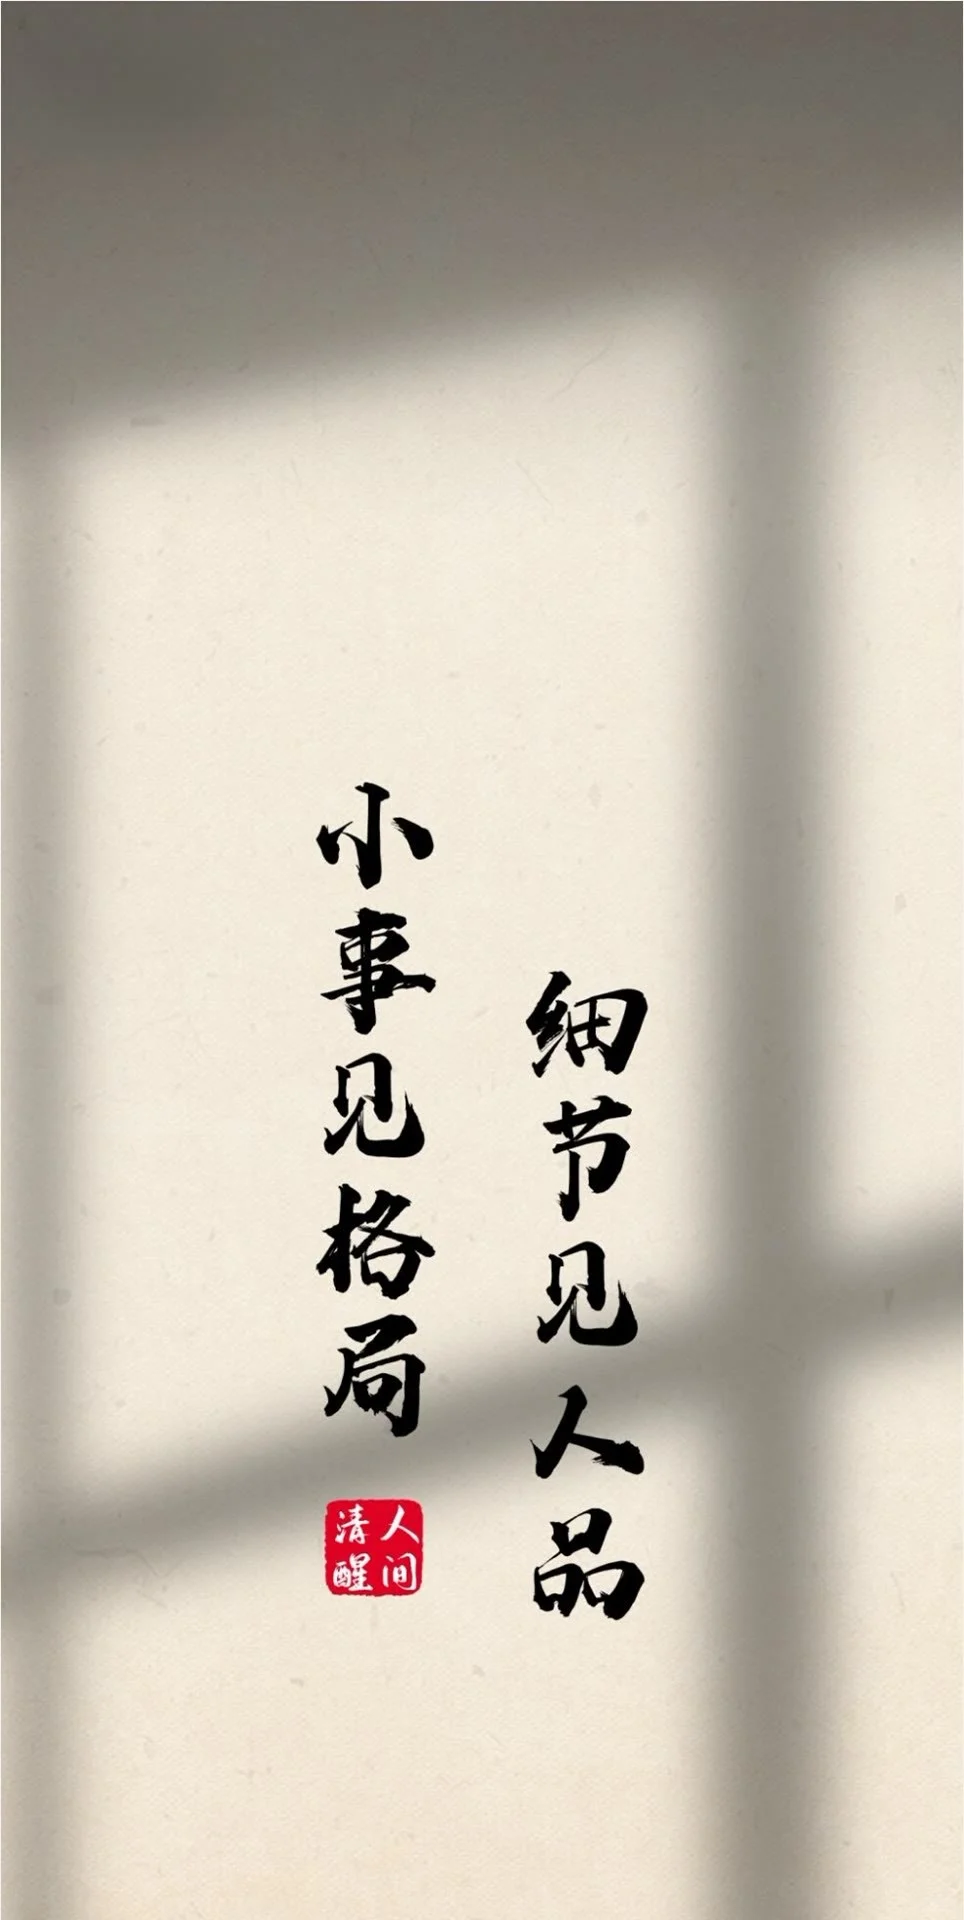 小事见格局
细节见人品
人间
清醒